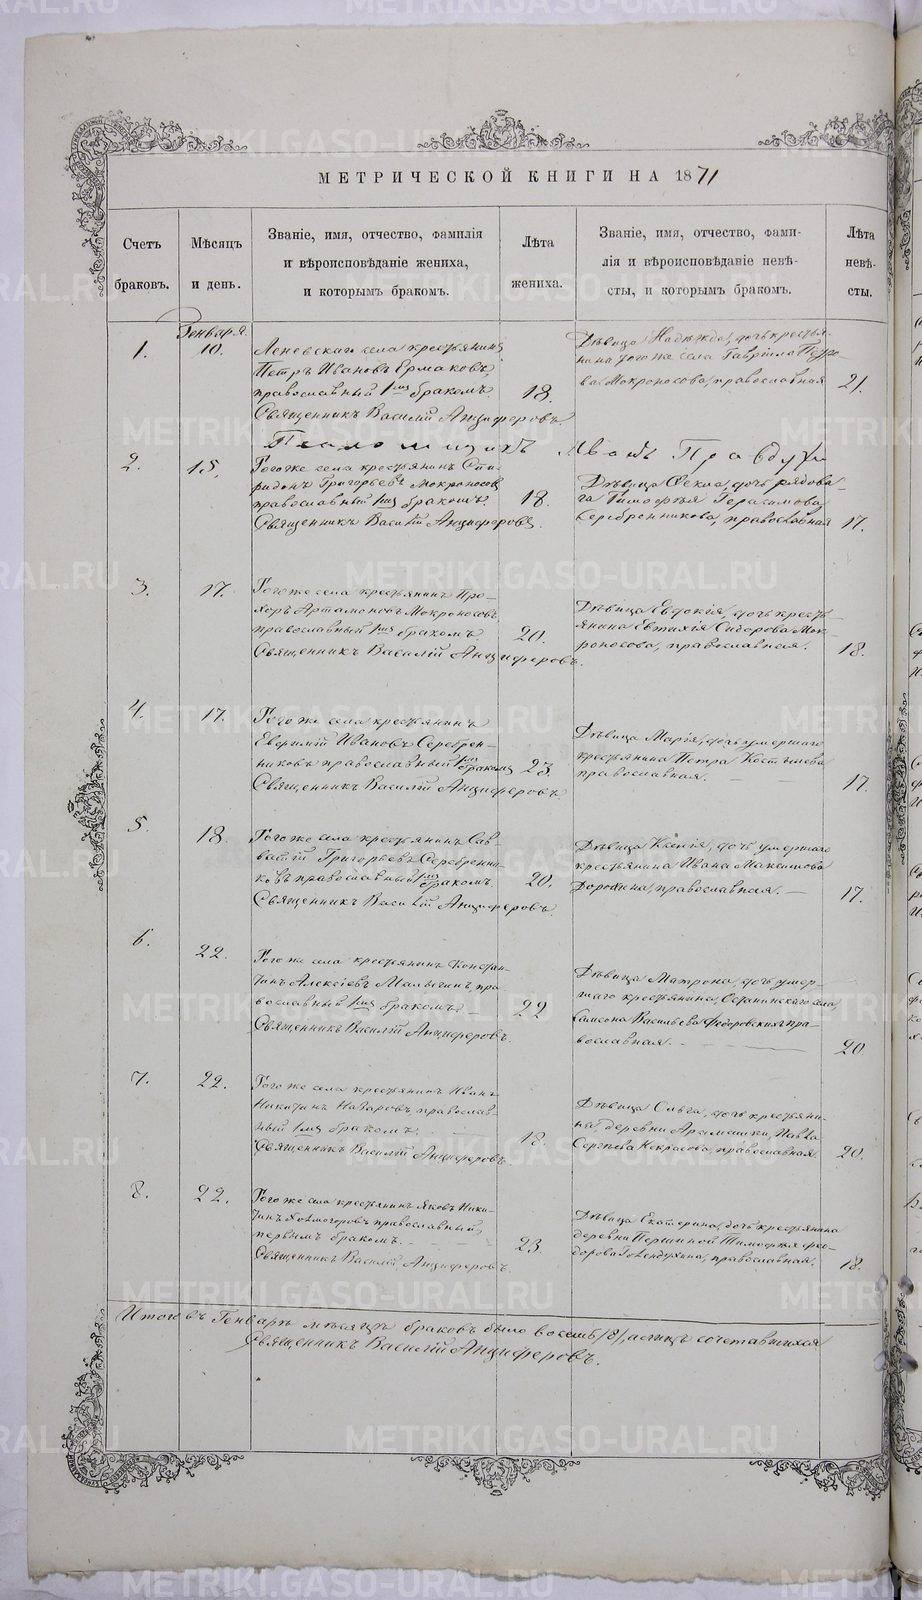 МЕТРИЧЕСКОЙ КНИГИ НА 1871
Счетъ браковъ.
Мѣсяцъ и день.
Званіе, имя, отчество, фамилія
и вѣроисповѣданіе жениха,
и которымъ бракомъ.
Лѣта жениха.
Званіе, имя, отчество, фами-
лія и вѣроисповѣданіе невѣ-
сты, и которымъ бракомъ.
Лѣта невѣ-
сты.
Генваря
1. 10.
Леневскаго села крестьянинъ
Петръ Ивановъ Ермаковъ,
православный 1мъ бракомъ.
Священникъ Василій Анциферовъ.
18.
Дѣвица Надежда, дочь крестья-
нина того же села Гавріила Петро-
ва Мокроносова, православная
21.
2. 15.
Того же села крестьянинъ Спи-
ридонъ Григорьевъ Мокроносовъ
православный 1мъ бракомъ.
Священникъ Василій Анциферовъ.
18.
Дѣвица Ѳекла, дочь рядова-
го Тимоѳея Герасимова
Серебренникова, православная
17.
3. 17.
Того же села крестьянинъ Про-
хоръ Артамоновъ Мокроносовъ
православный 1мъ бракомъ.
Священникъ Василій Анциферовъ.
20.
Дѣвица Евдокія, дочь кресть-
янина Евтихія Сидорова Мок-
роносова, православная.
18.
4. 17.
Того же села крестьянинъ
Евфимій Ивановъ Серебрен-
никовъ православный 1мъ бракомъ
Священникъ Василій Анциферовъ.
23.
Дѣвица Марія, дочь умершаго
крестьянина Петра Костылева
православная.
17.
5. 18.
Того же села крестьянинъ Сав-
ватій Григорьевъ Серебренни-
ковъ православный 1мъ бракомъ.
Священникъ Василій Анциферовъ.
20.
Дѣвица Ксенія, дочь умершаго
крестьянина Ивана Максимова
Дорохина, православная.
17.
6. 22.
Того же села крестьянинъ Констан-
тинъ Алексіевъ Малыгинъ, пра-
вославный 1мъ бракомъ
Священникъ Василій Анциферовъ.
22
Дѣвица Матрона, дочь умер-
шаго крестьянина, села,
Самсона Васильева Федоровскихъ пра-
вославная.
20.
7. 22.
Того же села крестьянинъ Иванъ
Никитинъ Назаровъ, православ-
ный 1мъ бракомъ.
Священникъ Василій Анциферовъ.
18.
Дѣвица Ольга, дочь крестьяни-
на деревни Арамашки, Павла
Сергѣева Некрасова, православная.
20.
8. 22.
Того же села крестьянинъ Яковъ Ники-
тинъ Холмогоровъ православный,
первымъ бракомъ.
Священникъ Василій Анциферовъ.
23.
Дѣвица Екатерина, дочь крестьянина
деревни Першиной Тимоѳея Фео-
дорова православная.
18.
Итого въ Генварѣ мѣсяцѣ браковъ было восемь /8/, а лицъ сочетавшихся
Священникъ Василій Анциферовъ.
METRIKI.GASO-URAL.RU